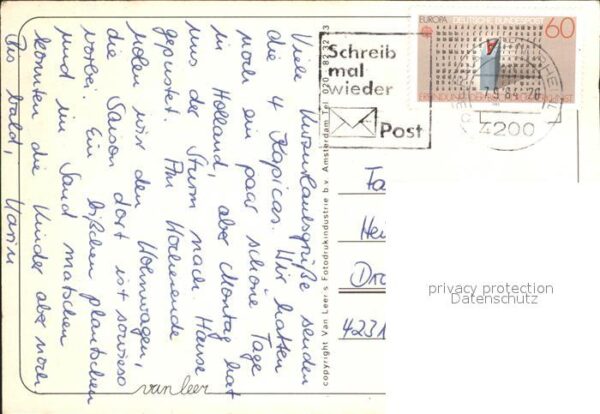 Viele Kurzurlaubsgrüße senden
die 4 Kopicas. Wir hatten
noch ein paar schöne Tage
in Holland, aber Montag hat
uns der Sturm nach Hause
gepustet. Am Wochenende
holen wir den Wohnwagen,
die Saison dort ist sowieso
vorbei. Ein bißchen plantschen
und im Sand matschen
konnten die Kinder aber noch
Bis bald, Karin
van leer
copyright Van Leer's Fotodrukindustrie b.v. Amsterdam Tel. 020 - 823233
Schreib
mal
wieder
Post
EUROPA DEUTSCHE BUNDESPOST 60
4200
Fa
Hei
Dro
4231
privacy protection
Datenschutz